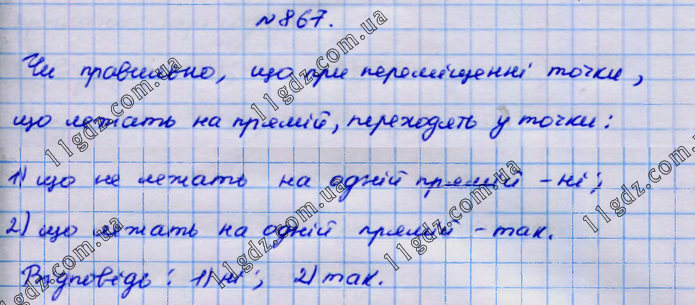 №867.
Чи правильно, що при переміщенні точки,
що лежать на прямій, переходять у точки:
1) що не лежать на одній прямій - ні;
2) що лежать на одній прямій - так.
Відповідь: 1) ні; 2) так.
11gdz.com.ua
11gdz.com.ua
11gdz.com.ua
11gdz.com.ua
11gdz.com.ua
11gdz.com.ua
11gdz.com.ua